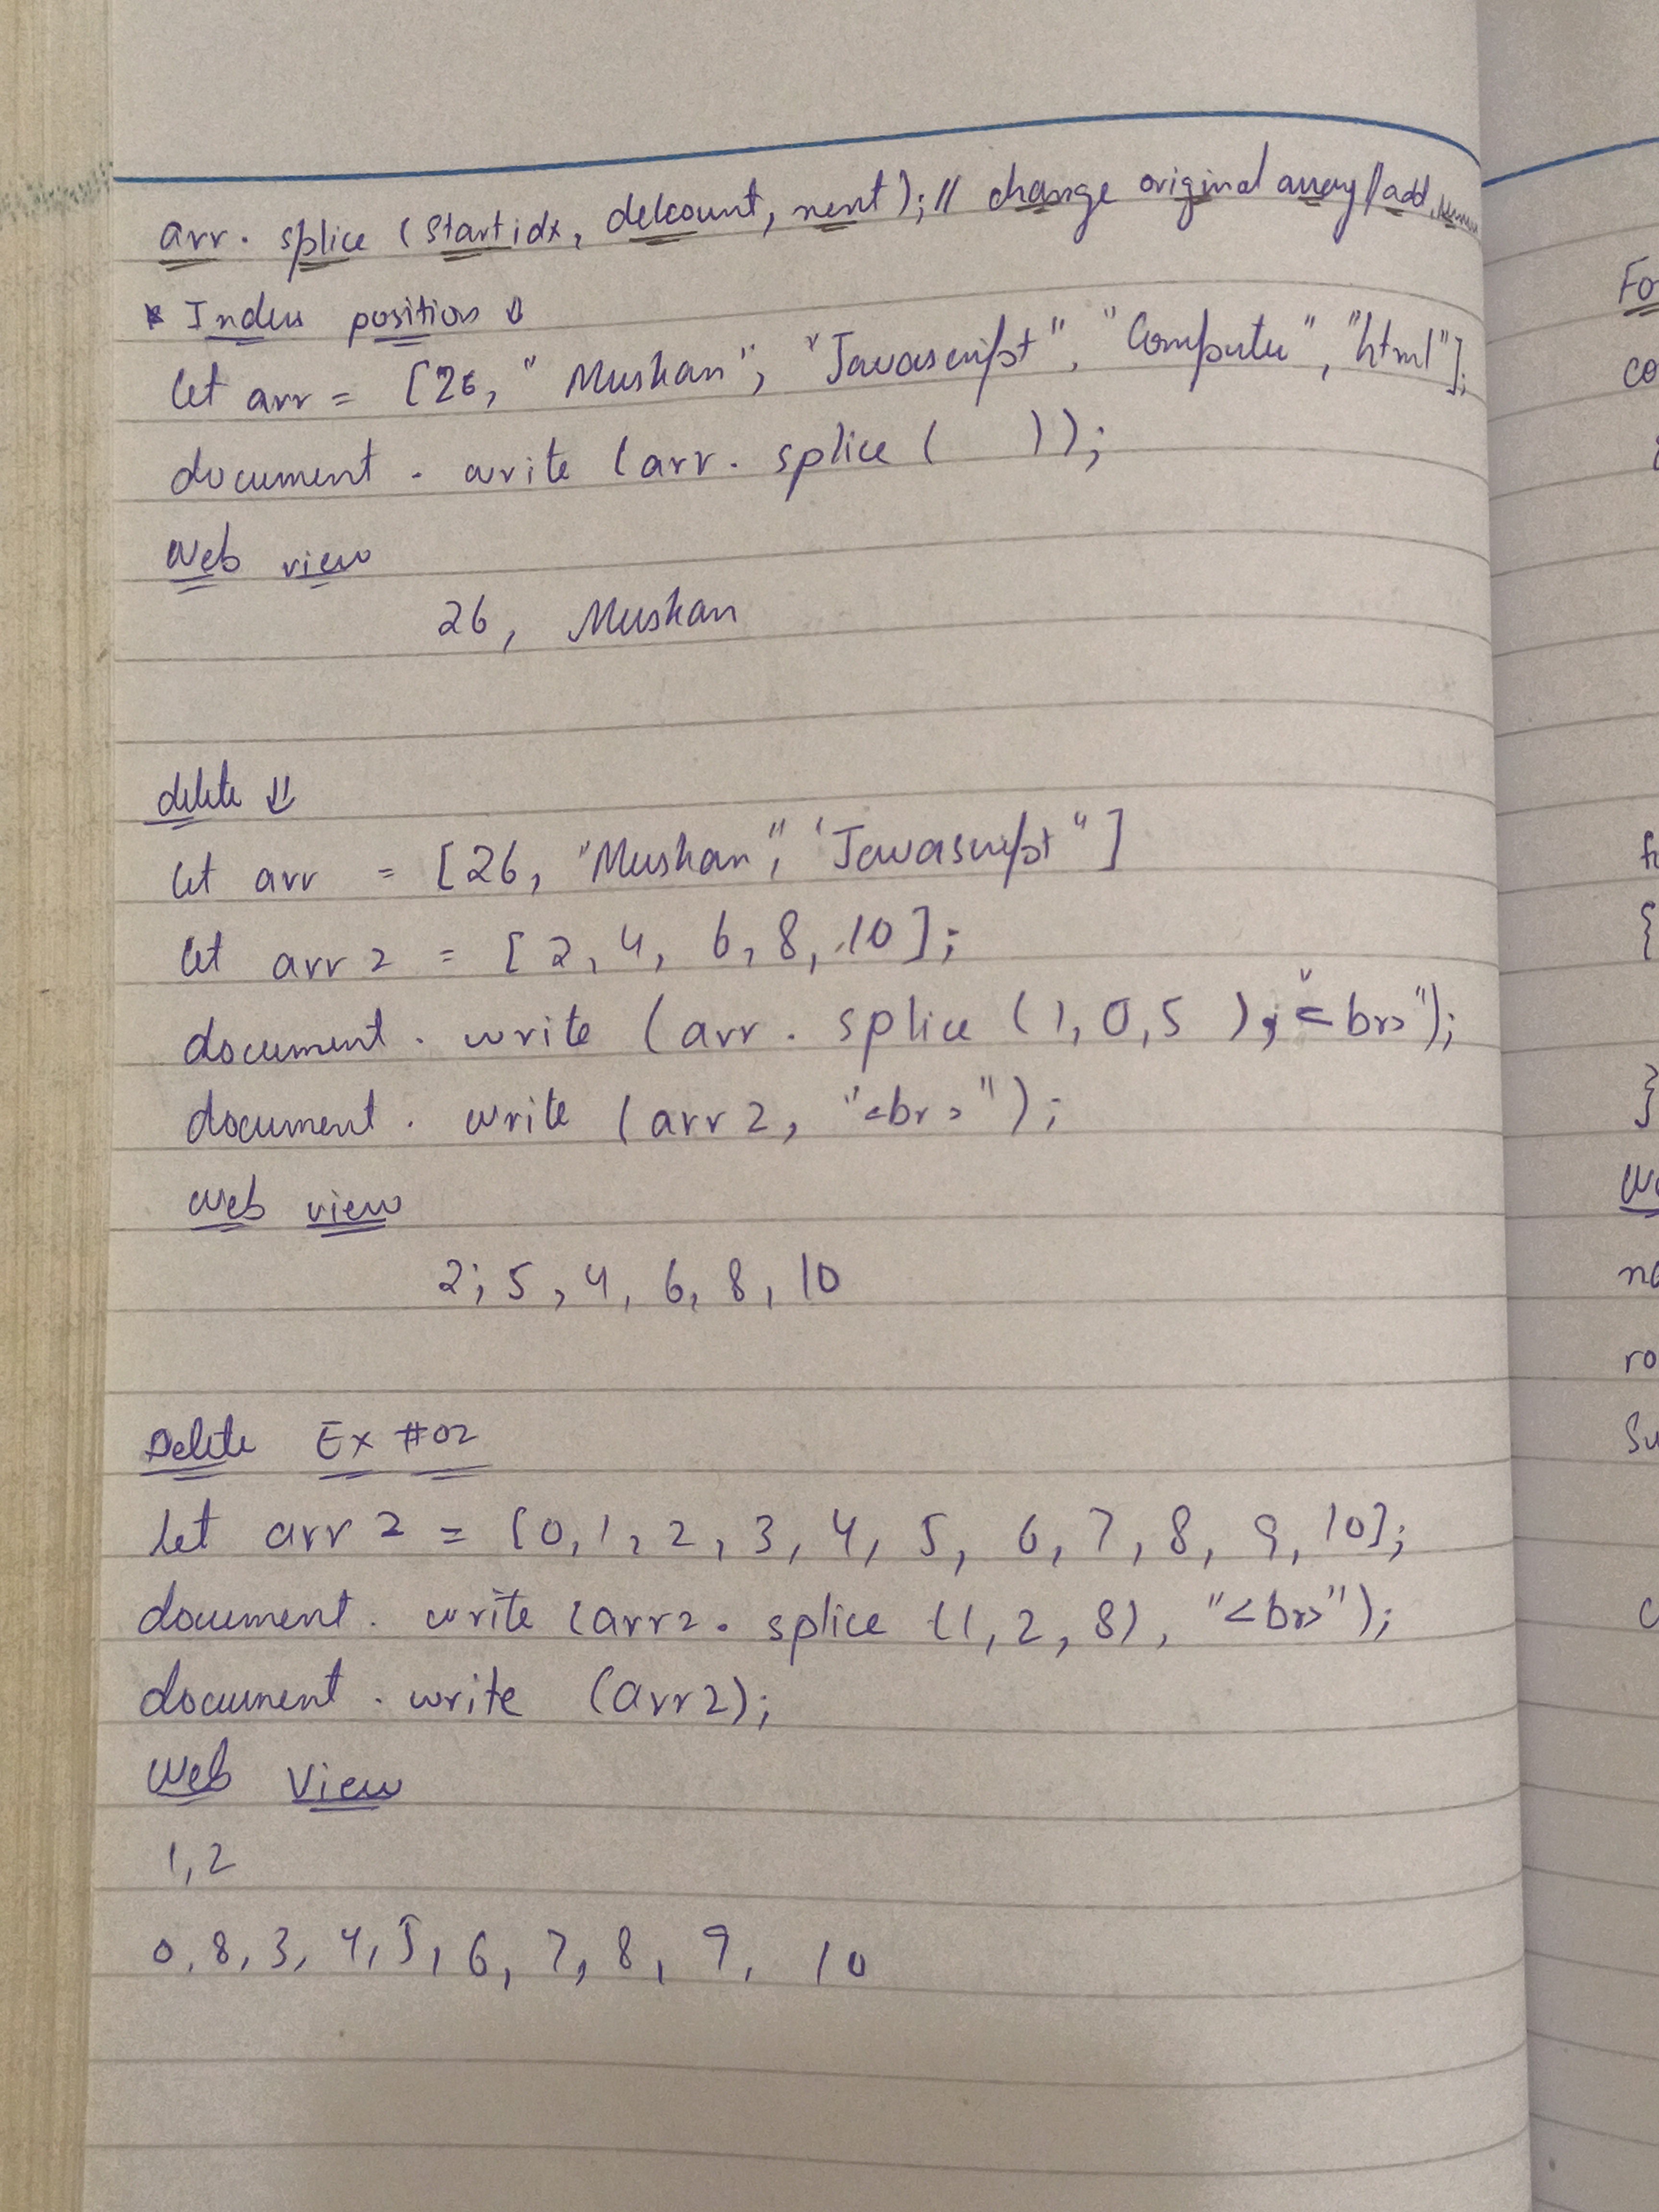 arr. splice (Startidx, delcount, nent); // change original array/add,
* Index position ⇓
let arr = [26, "Muskan", "Javascript", "Computer", "html"];
document . write (arr. splice ( ));
Web view
26, Muskan
delete ⇓
let arr = [26, "Muskan", 'Javascript"]
let arr 2 = [2, 4, 6, 8, 10];
document . write (arr . splice (1, 0, 5 ), "<br>");
document . write (arr 2, "<br>");
Web view
2; 5, 4, 6, 8, 10
Delete Ex #02
let arr 2 = [0, 1, 2, 3, 4, 5, 6, 7, 8, 9, 10];
document . write (arr2. splice (1, 2, 8), "<br>");
document . write (arr2);
Web View
1, 2
0, 8, 3, 4, 5, 6, 7, 8, 9, 10
Fo
co
{
}
ro
Su